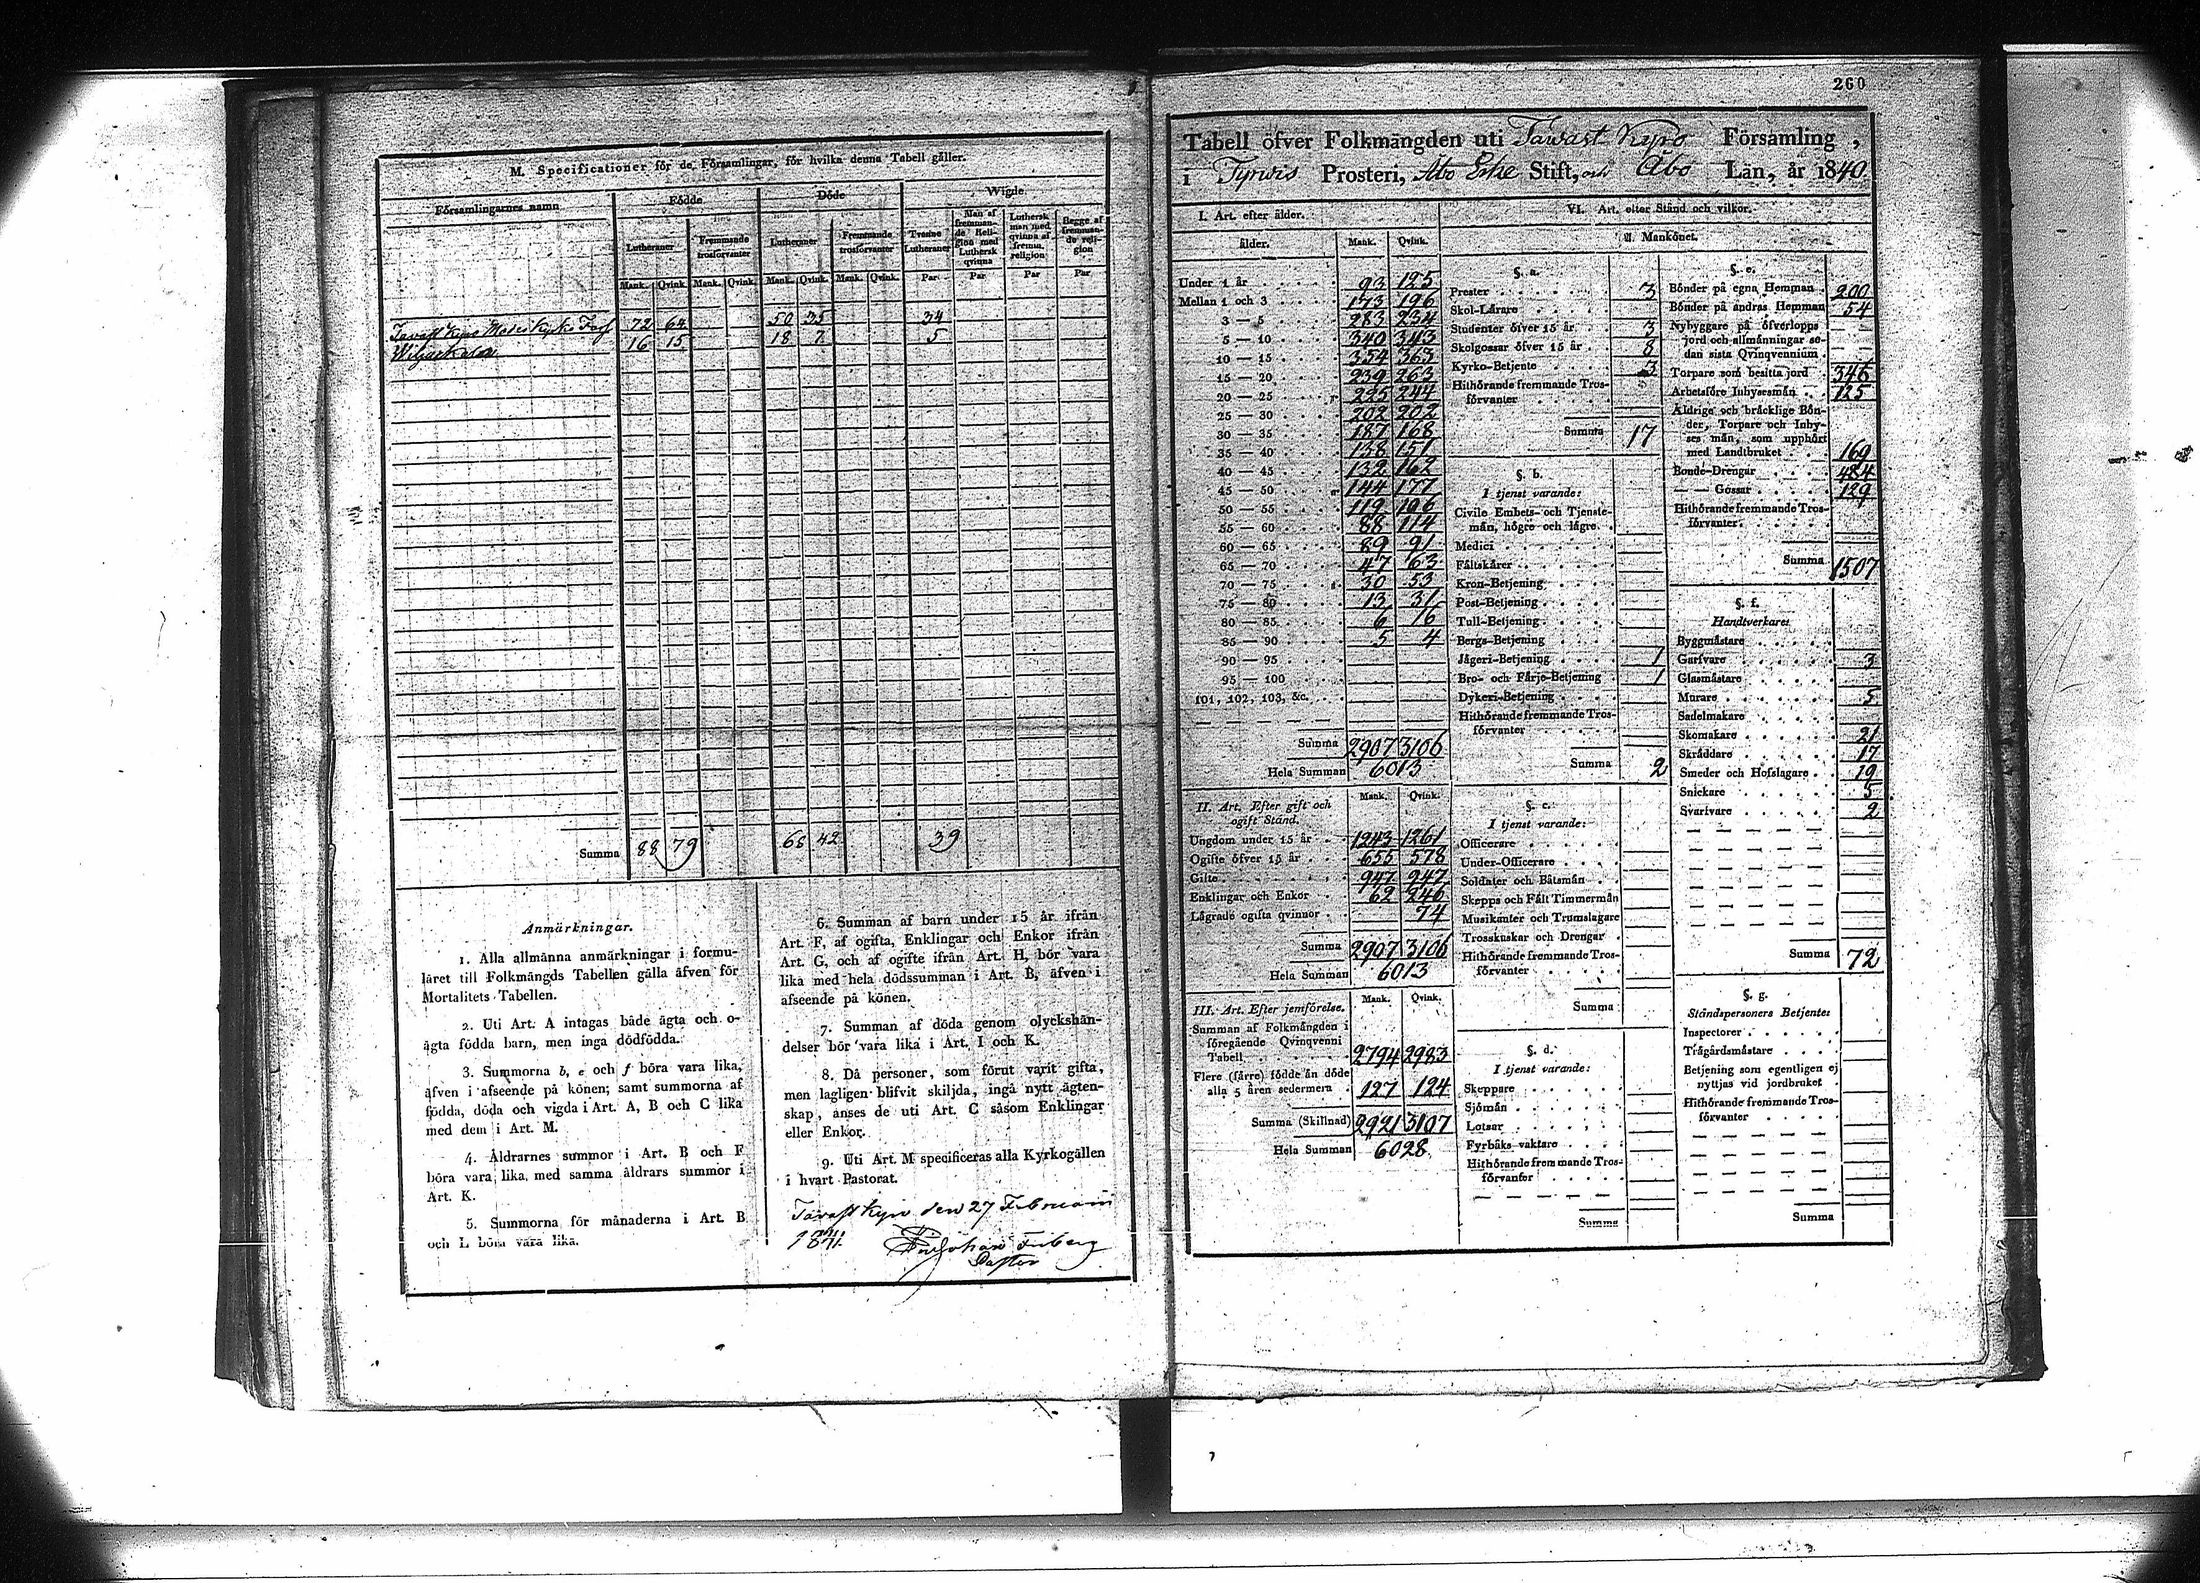 M. Specificationer för de Församlingar, för hvilka denna Tabell gäller.
Församlingarnes namn
Födde
Döde
Wigde
Lutheraner
Fremmande trosförvanter
Lutheraner
Fremmande trosförvanter
Tvenne Lutheraner
Man af fremmande Religion med Luthersk qvinna
Luthersk man med qvinna af fremm. religion
Begge af fremmande religion
Mank. Qvink. Mank. Qvink. Mank. Qvink. Mank. Qvink. Par Par Par Par
Tavast Kyro Moder Kyrko Förs 72 64 50 35 34
16 15 18 7 5
Summa 88 79 68 42 39
Anmärkningar.
1. Alla allmänna anmärkningar i formu-
läret till Folkmängds Tabellen gälla äfven för
Mortalitets Tabellen.
2. Uti Art. A intagas både ägta och o-
ägta födda barn, men inga dödfödda.
3. Summorna b, e och f böra vara lika,
äfven i afseende på könen; samt summorna af
födda, döda och vigda i Art. A, B och C lika
med dem i Art. M.
4. Åldrarnes summor i Art. B och F
böra vara lika, med samma åldrars summor i
Art. K.
5. Summorna för månaderna i Art. B
och L böra vara lika.
6. Summan af barn under 15 år ifrån
Art. F, af ogifta, Enklingar och Enkor ifrån
Art. G, och af ogifte ifrån Art. H, bör vara
lika med hela dödssumman i Art. B, äfven i
afseende på könen.
7. Summan af döda genom olyckshän-
delser bör vara lika i Art. I och K.
8. Då personer, som förut varit gifta,
men lagligen blifvit skiljda, ingå nytt ägten-
skap, anses de uti Art. C såsom Enklingar
eller Enkor.
9. Uti Art. M specificeras alla Kyrkogällen
i hvart Pastorat.
Tavast Kyro den 27 Februarii
1841.
Johan Friberg
Pastor
260
Tabell öfver Folkmängden uti Tawast Kyro Församling,
i Tyrwis Prosteri, Åbo Erke Stift, och Åbo Län, år 1840.
I. Art. efter ålder.
ålder. Mank. Qvink.
Under 1 år 93 125
Mellan 1 och 3 173 196
3 — 5 283 234
5 — 10 340 343
10 — 15 354 363
15 — 20 239 263
20 — 25 225 244
25 — 30 202 202
30 — 35 187 168
35 — 40 138 151
40 — 45 132 162
45 — 50 144 177
50 — 55 119 106
55 — 60 88 114
60 — 65 89 91
65 — 70 47 63
70 — 75 30 53
75 — 80 13 31
80 — 85 6 16
85 — 90 5 4
90 — 95
95 — 100
101, 102, 103, &c.
Summa 2907 3106
Hela Summan 6013
II. Art. Efter gift och
ogift Stånd.
Mank. Qvink.
Ungdom under 15 år 1243 1261
Ogifte öfver 15 år 655 578
Gifte 947 947
Enklingar och Enkor 62 246
Lägrade ogifta qvinnor 74
Summa 2907 3106
Hela Summan 6013
III. Art. Efter jemförelse.
Mank. Qvink.
Summan af Folkmängden i
föregående Qvinqvenni
Tabell 2794 2983
Flere (färre) födde än döde
alla 5 åren sedermera 127 124
Summa (Skillnad) 2921 3107
Hela Summan 6028
VI. Art. efter Stånd och vilkor.
Mankönet.
§. a.
Prester 3
Skol-Lärare
Studenter öfver 15 år 3
Skolgossar öfver 15 år 8
Kyrko-Betjente 3
Hithörande fremmande Tros-
förvanter
Summa 17
§. b.
I tjenst varande:
Civile Embets- och Tjenste-
män, högre och lägre
Medici
Fältskärer
Kron-Betjening
Post-Betjening
Tull-Betjening
Bergs-Betjening
Jägeri-Betjening 1
Bro- och Färje-Betjening 1
Dykeri-Betjening
Hithörande fremmande Tros-
förvanter
Summa 2
§. c.
I tjenst varande:
Officerare
Under-Officerare
Soldater och Båtsmän
Skepps och Fält Timmermän
Musikanter och Trumslagare
Trosskuskar och Drengar
Hithörande fremmande Tros-
förvanter
Summa
§. d.
I tjenst varande:
Skeppare
Sjömän
Lotsar
Fyrbåks vaktare
Hithörande fremmande Tros-
förvanter
Summa
§. e.
Bönder på egna Hemman 200
Bönder på andras Hemman 54
Nybyggare på öfverlopps
jord och allmänningar se-
dan sista Qvinqvennium
Torpare som besitta jord 346
Arbetsföre Inhysesmän 125
Åldrige och bräcklige Bön-
der, Torpare och Inhy-
ses män, som upphört
med Landtbruket 169
Bonde-Drengar 484
— — Gossar 129
Hithörande fremmande Tros-
förvanter
Summa 1507
§. f.
Handtverkare:
Byggmästare
Garfvare 3
Glasmästare
Murare 5
Sadelmakare
Skomakare 21
Skräddare 17
Smeder och Hofslagare 19
Snickare 5
Svarfvare 2
Summa 72
§. g.
Ståndspersoners Betjente:
Inspectorer
Trägårdsmästare
Betjening som egentligen ej
nyttjas vid jordbruket
Hithörande fremmande Tros-
förvanter
Summa